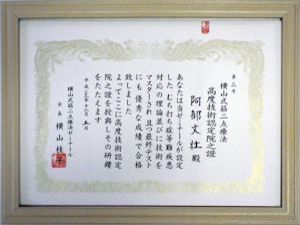 第二号
横山式筋二点療法
高度技術認定院之證
阿部文仕殿
あなたは当ゼミナールが設定
した、むち打ち症等難疾患
対応の理論並びに技術を
マスターされ、且つ最終テスト
にも優秀な成績で合格
致しました
よってここに高度技術認定
院之證を授与しその研鑽
をたたえます
平成
横山式筋二点療法ゼミナール
会長 横山